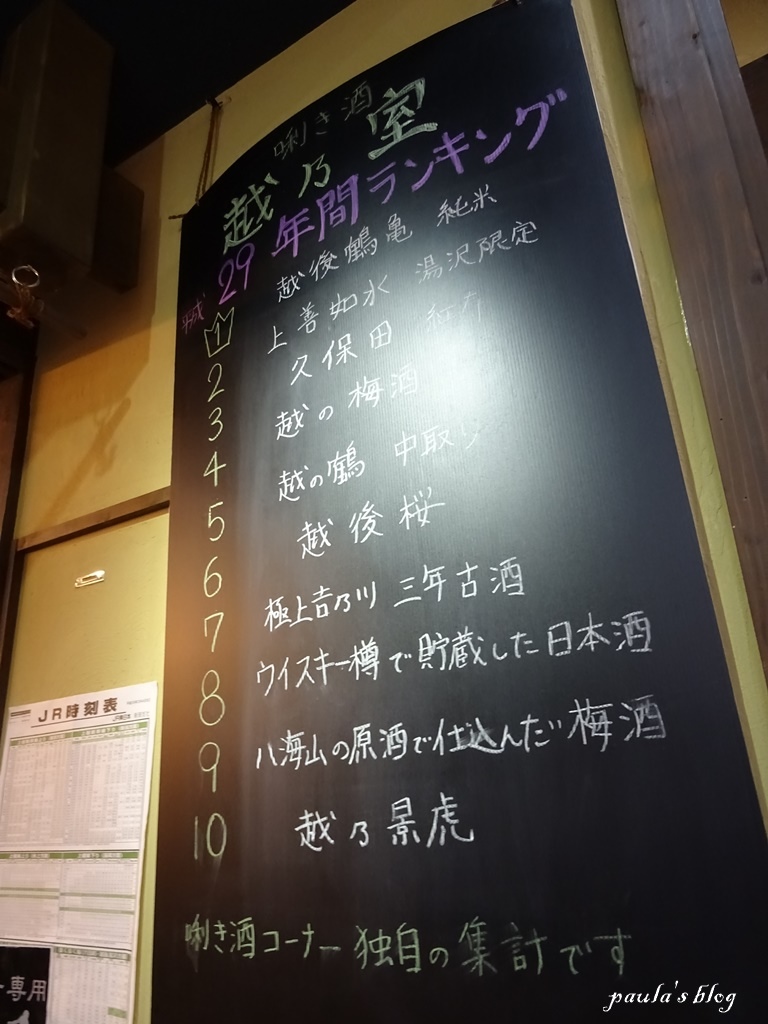 唎き酒
越乃室
平成29年間ランキング
1 越後鶴亀 純米
2 上善如水 湯沢限定
3 久保田 紅寿
4 越の梅酒
5 越の鶴 中取り
6 越後桜
7 極上吉乃川 三年古酒
8 ウイスキー樽で貯蔵した日本酒
9 八海山の原酒で仕込んだ梅酒
10 越乃景虎
唎き酒コーナー独自の集計です
JR時刻表
専用
paula's blog